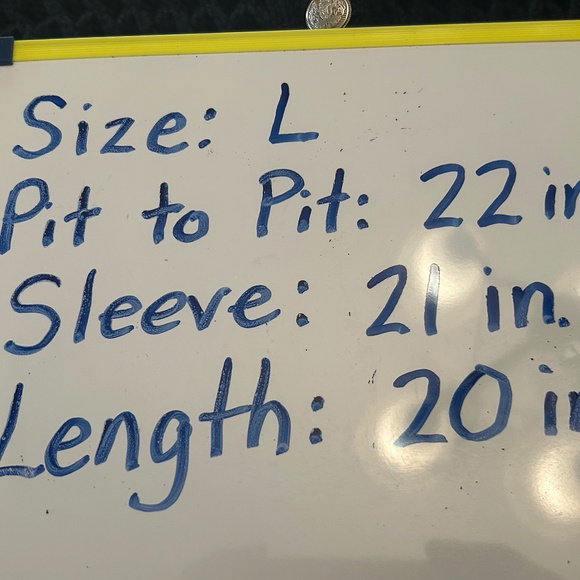 Size: L
Pit to Pit: 22 in
Sleeve: 21 in.
Length: 20 in